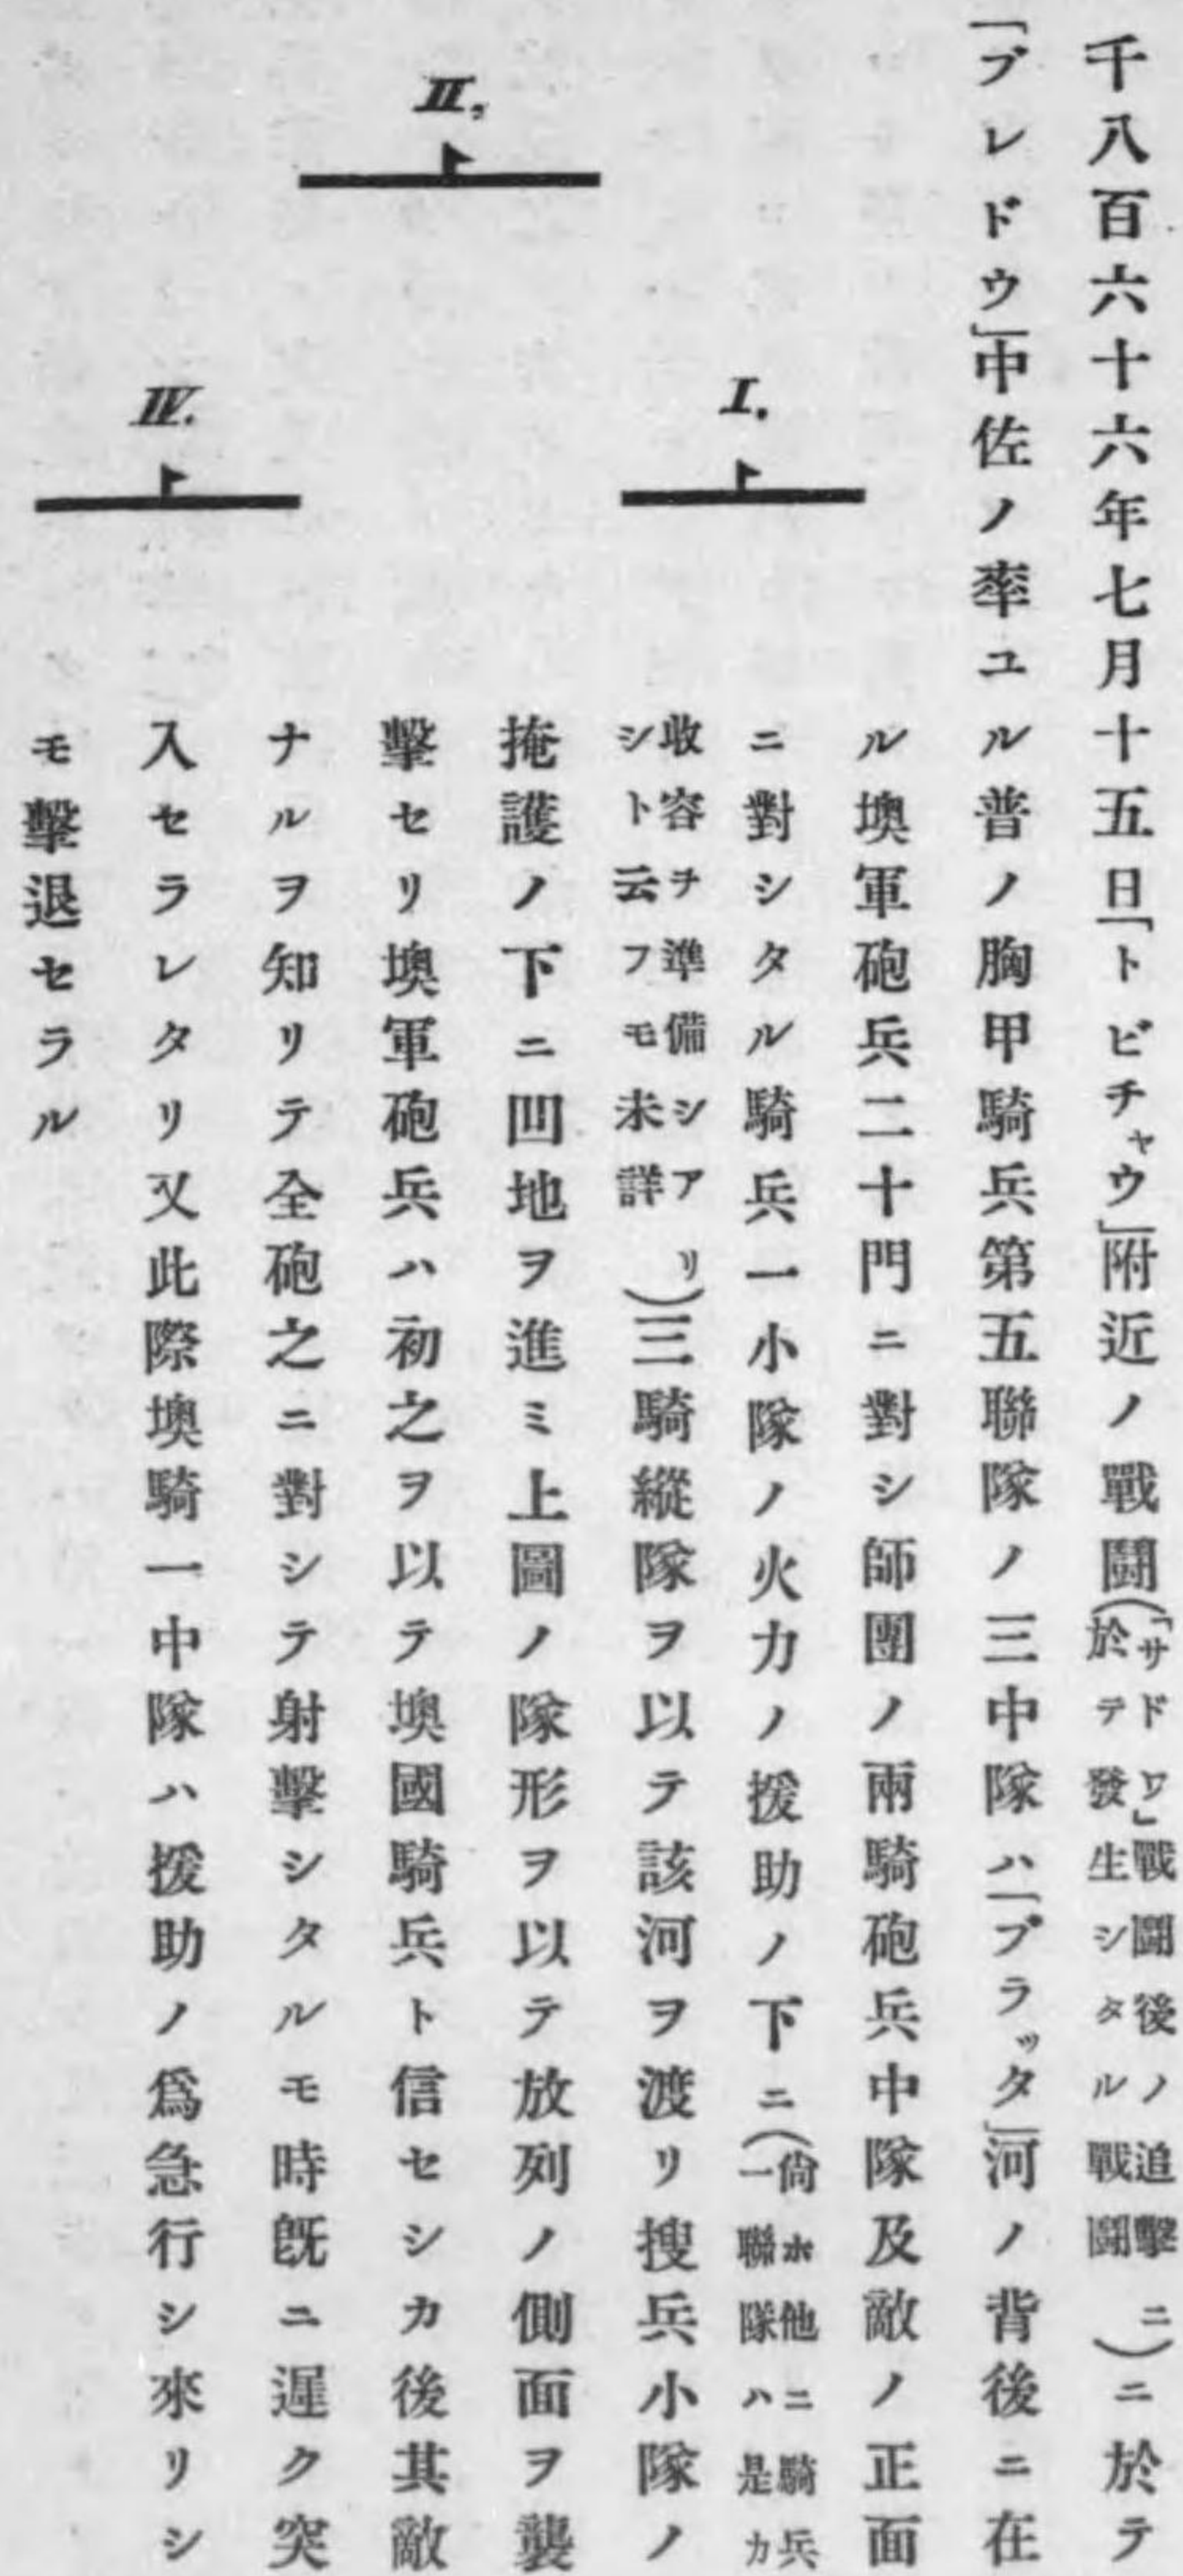 千八百六十六年七月十五日「トビチャウ」附近ノ戰鬪(「サドワ」戰鬪後ノ追擊ニ於テ發生シタル戰鬪)ニ於テ
「ブレドウ」中佐ノ率ユル普ノ胸甲騎兵第五聯隊ノ三中隊ハ「ブラッタ」河ノ背後ニ在
ル墺軍砲兵二十門ニ對シ師團ノ兩騎砲兵中隊及敵ノ正面
ニ對シタル騎兵一小隊ノ火力ノ援助ノ下ニ(尙ホ他ニ騎兵一聯隊ハ是カ
收容チ準備シアリシト云フモ未詳)三騎縱隊ヲ以テ該河ヲ渡リ搜兵小隊ノ
掩護ノ下ニ凹地ヲ進ミ上圖ノ隊形ヲ以テ放列ノ側面ヲ襲
擊セリ墺軍砲兵ハ初之ヲ以テ墺國騎兵ト信セシカ後其敵
ナルヲ知リテ全砲之ニ對シテ射擊シタルモ時旣ニ遲ク突
入セラレタリ又此際墺騎一中隊ハ援助ノ爲急行シ來リシ
モ擊退セラル
I.
II.
IV.